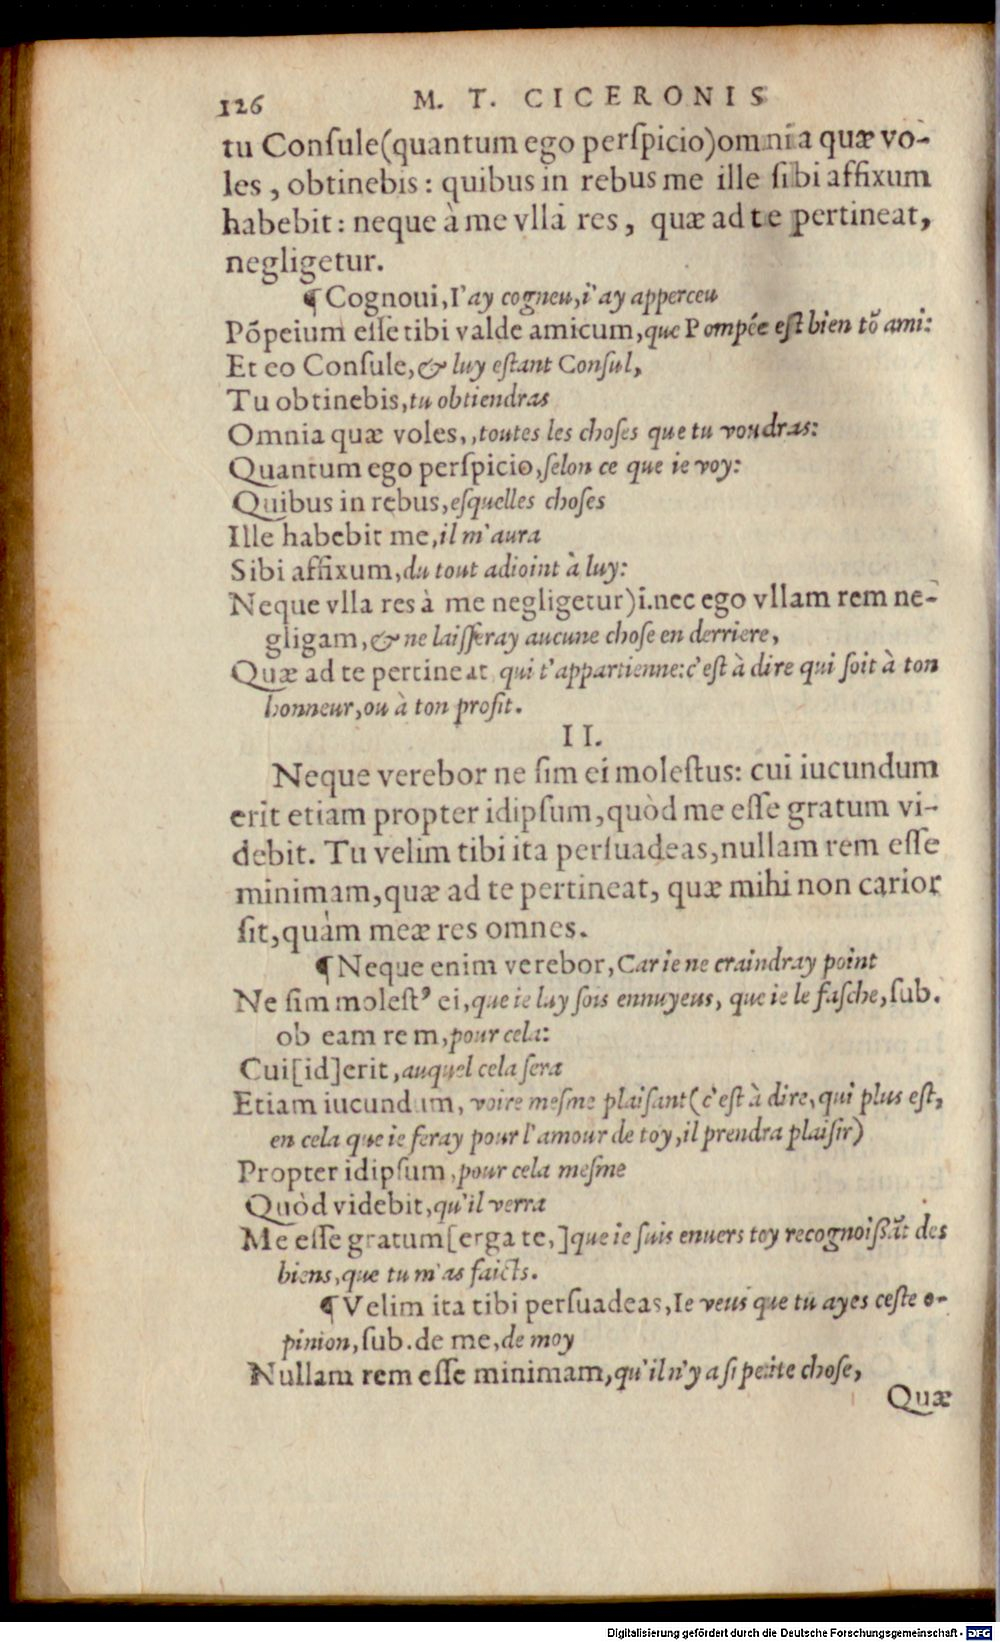 126 M. T. CICERONIS
tu Conſule(quantum ego perſpicio)omnia quæ vo-
les, obtinebis: quibus in rebus me ille ſibi affixum
habebit: neque à me vlla res, quæ ad te pertineat,
negligetur.
¶ Cognoui, I'ay cogneu, i'ay apperceu
Põpeium eſſe tibi valde amicum, que Pompée eſt bien tõ ami:
Et eo Conſule, & luy eſtant Conſul,
Tu obtinebis, tu obtiendras
Omnia quæ voles,, toutes les choſes que tu voudras:
Quantum ego perſpicio, ſelon ce que ie voy:
Quibus in rebus, eſquelles choſes
Ille habebit me, il m'aura
Sibi affixum, du tout adioint à luy:
Neque vlla res à me negligetur)i.nec ego vllam rem ne-
gligam, & ne laiſſeray aucune choſe en derriere,
Quæ ad te pertineat qui t'appartienne: c'eſt à dire qui ſoit à ton
honneur, ou à ton profit.
II.
Neque verebor ne ſim ei moleſtus: cui iucundum
erit etiam propter idipſum, quòd me eſſe gratum vi-
debit. Tu velim tibi ita perſuadeas, nullam rem eſſe
minimam, quæ ad te pertineat, quæ mihi non carior
ſit, quàm meæ res omnes.
¶ Neque enim verebor, Car ie ne craindray point
Ne ſim moleſtꝰ ei, que ie luy ſois ennuyeus, que ie le faſche, ſub.
ob eam rem, pour cela:
Cui[id]erit, auquel cela ſera
Etiam iucundum, voire meſme plaiſant(c'eſt à dire, qui plus eſt,
en cela que ie feray pour l'amour de toy, il prendra plaiſir)
Propter idipſum, pour cela meſme
Quòd videbit, qu'il verra
Me eſſe gratum[erga te,] que ie ſuis enuers toy recognoiſſãt des
biens, que tu m'as faicts.
¶ Velim ita tibi perſuadeas, Ie veus que tu ayes ceſte o-
pinion, ſub. de me, de moy
Nullam rem eſſe minimam, qu'il n'y a ſi petite choſe,
Quæ
Digitalisierung gefördert durch die Deutsche Forschungsgemeinschaft - DFG